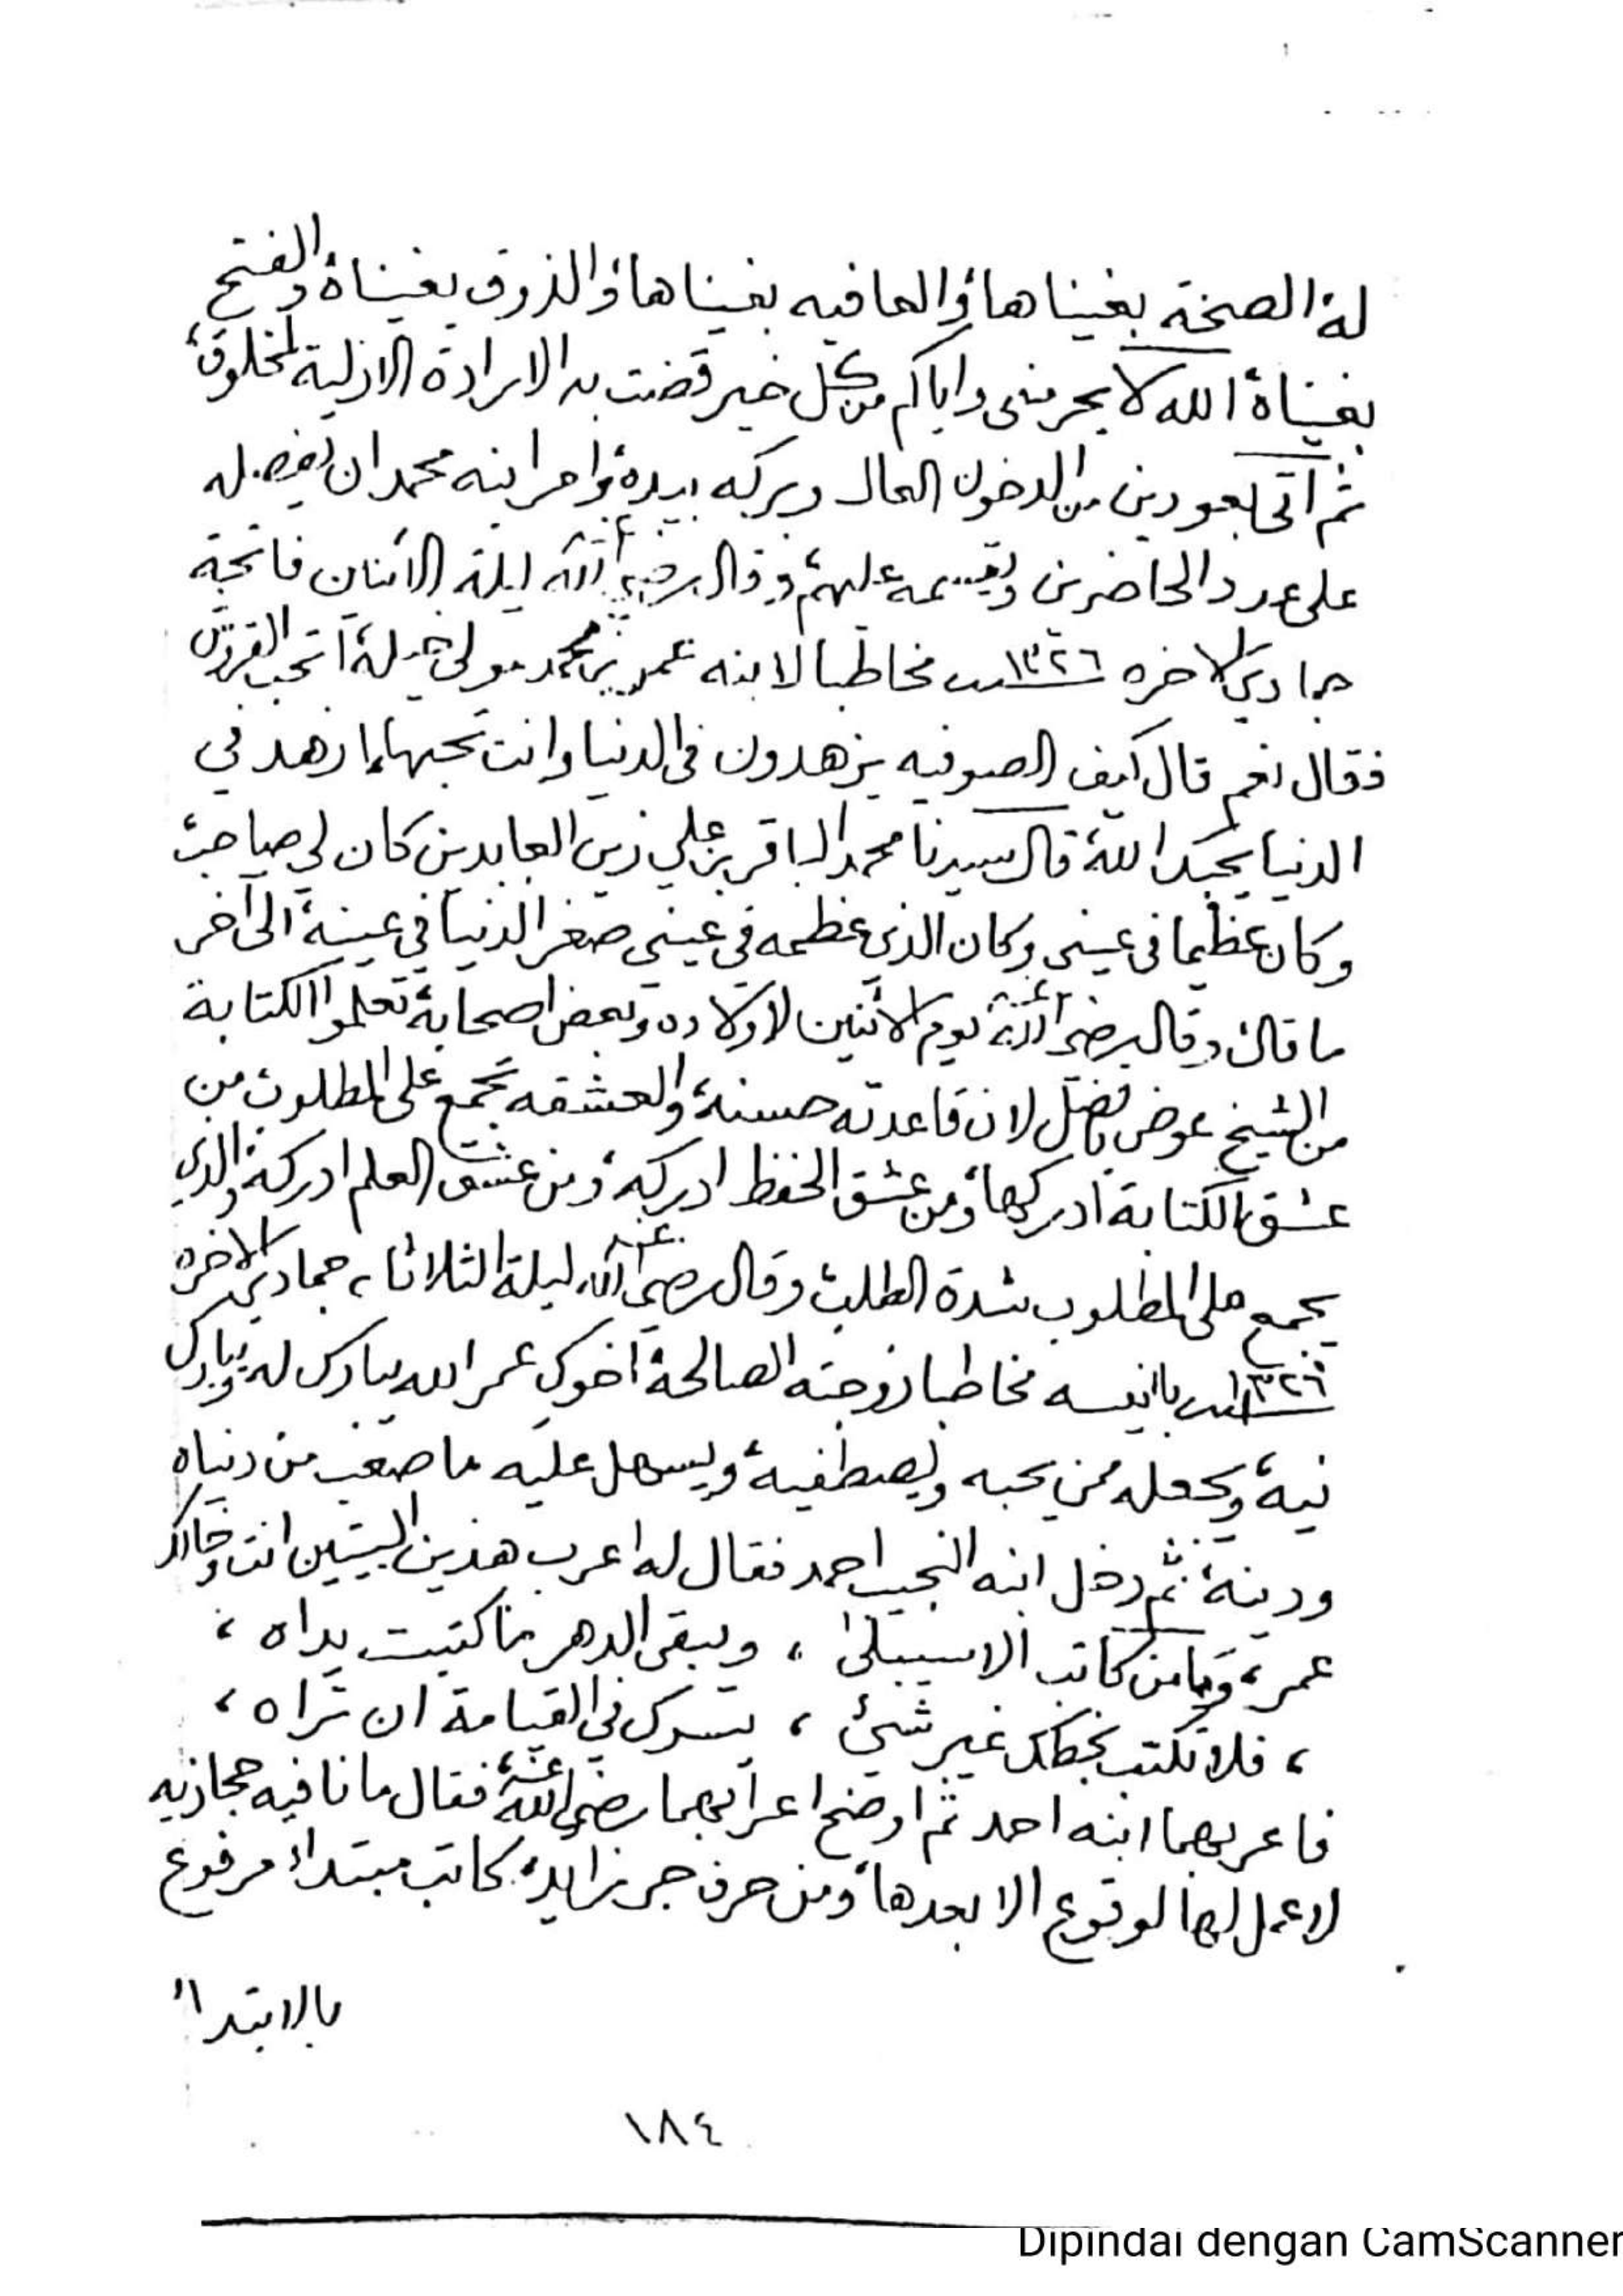 له، الصحة بغيناها، والعافيه بغيناها، والذوق بغيناه، والفتح
بغيناه، الله لا يحرمنى واياكم من كل خير قضت به الارادة الازلية لمخلوق،
ثم اتى بعودين من الدخون العال وبركه بيده، وامر ابنه محمد ان يفصله
على عدد الحاضرين ويقسمه عليهم، وقال رضي الله ليلة الاثنان فاتحة
جمادى الاخره ١٣٢٦ مخاطبا لابنه عمر بن محمد مولى خيله، اتحب القروش
فقال نعم قال كيف الصوفيه يزهدون فى الدنيا وانت تحبها، ازهد في
الدنيا يحبك الله، قال سيدنا محمد الباقر بن علي زين العابدين كان لي صاحب،
وكان عظيما فى عيني وكان الذي عظمه في عيني صغر الدنيا في عينه، الى اخر
ما قال، وقال رضي الله عنه يوم الاثنين لاولاده وبعض اصحابه، تعلموا الكتابة
من الشيخ عوض بافضل لان قاعدته حسنه، والعشقه تجمع على المطلوب، من
عشق الكتابة ادركها، ومن عشق الحفظ ادركه، ومن عشق العلم ادركه، والذي
يجمع على المطلوب شدة الطلب، وقال رضي الله عنه ليلة الثلاثاء، جمادى الاخره
١٣٢٦ يا انيسه مخاطبا زوجته الصالحة، اخوك عمر الله يبارك له ويبارك
فيه، ويجعله ممن يحبه ويصطفيه، ويسهل عليه ما صعب من دنياه
ودينه، ثم دخل ابنه النجيب احمد فقال له اعرب هذين البيتين انت وخالك
عمر، وما من كاتب الا سيبلى ، ويبقى الدهر ما كتبت يداه ،
، فلا تكتب بخطك غير شيئ ، يسرك في القيامة ان تراه ،
فاعربهما ابنه احمد ثم اوضح اعرابهما رضي الله عنه، فقال ما نافيه حجازيه
لا عمل لها لوقوع الا بعدها، ومن حرف جر زايد، كاتب مبتداء مرفوع
بالابتداء
١٨٤
Dipindai dengan CamScanner